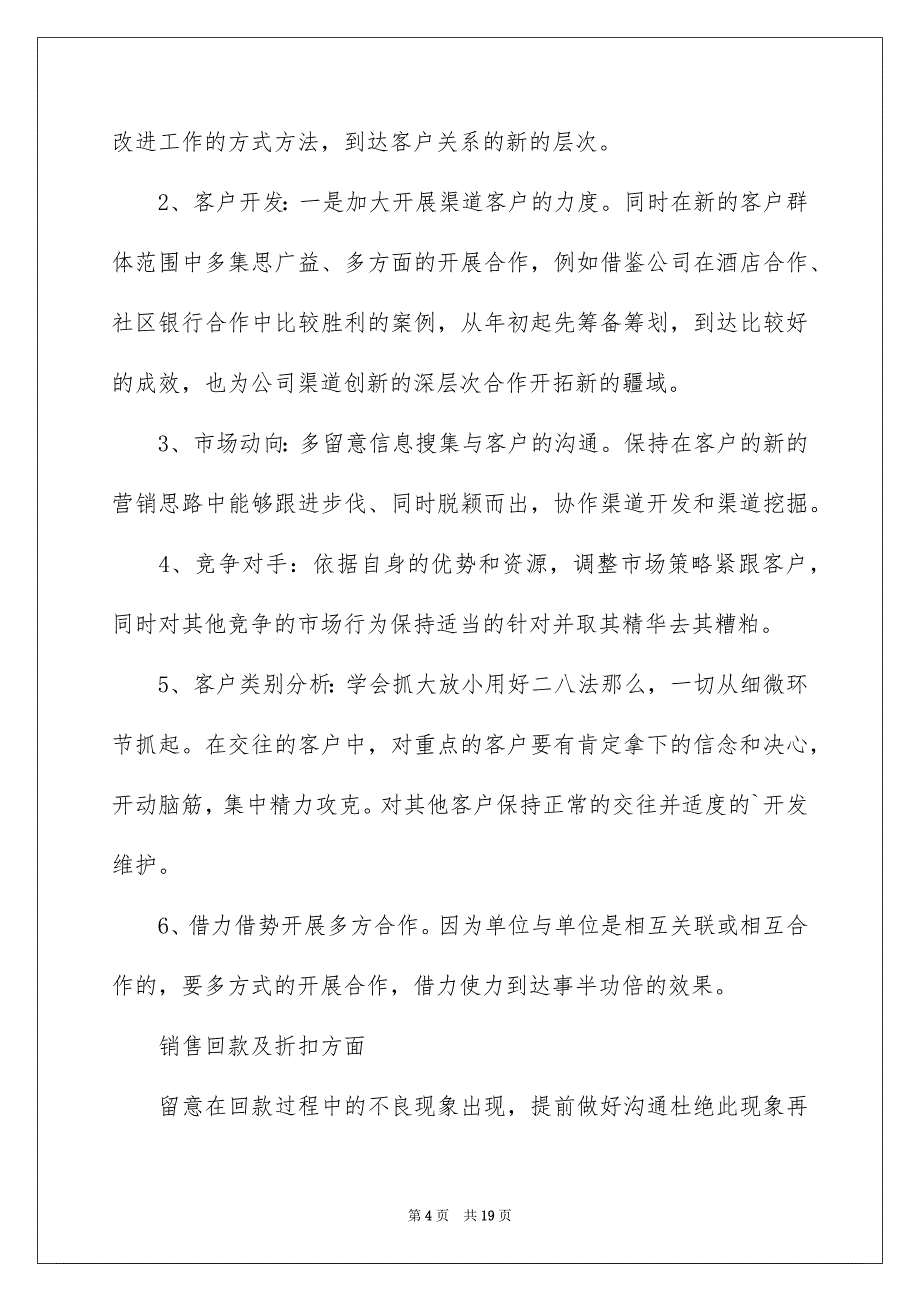 改进工作的方式方法，到达客户关系的新的层次。
2、客户开发：一是加大开展渠道客户的力度。同时在新的客户群
体范围中多集思广益、多方面的开展合作，例如借鉴公司在酒店合作、
社区银行合作中比较胜利的案例，从年初起先筹备筹划，到达比较好
的成效，也为公司渠道创新的深层次合作开拓新的疆域。
3、市场动向：多留意信息搜集与客户的沟通。保持在客户的新的
营销思路中能够跟进步伐、同时脱颖而出，协作渠道开发和渠道挖掘。
4、竞争对手：依据自身的优势和资源，调整市场策略紧跟客户，
同时对其他竞争的市场行为保持适当的针对并取其精华去其糟粕。
5、客户类别分析：学会抓大放小用好二八法那么，一切从细微环
节抓起。在交往的客户中，对重点的客户要有肯定拿下的信念和决心，
开动脑筋，集中精力攻克。对其他客户保持正常的交往并适度的`开发
维护。
6、借力借势开展多方合作。因为单位与单位是相互关联或相互合
作的，要多方式的开展合作，借力使力到达事半功倍的效果。
销售回款及折扣方面
留意在回款过程中的不良现象出现，提前做好沟通杜绝此现象再
第 4 页 共 19 页